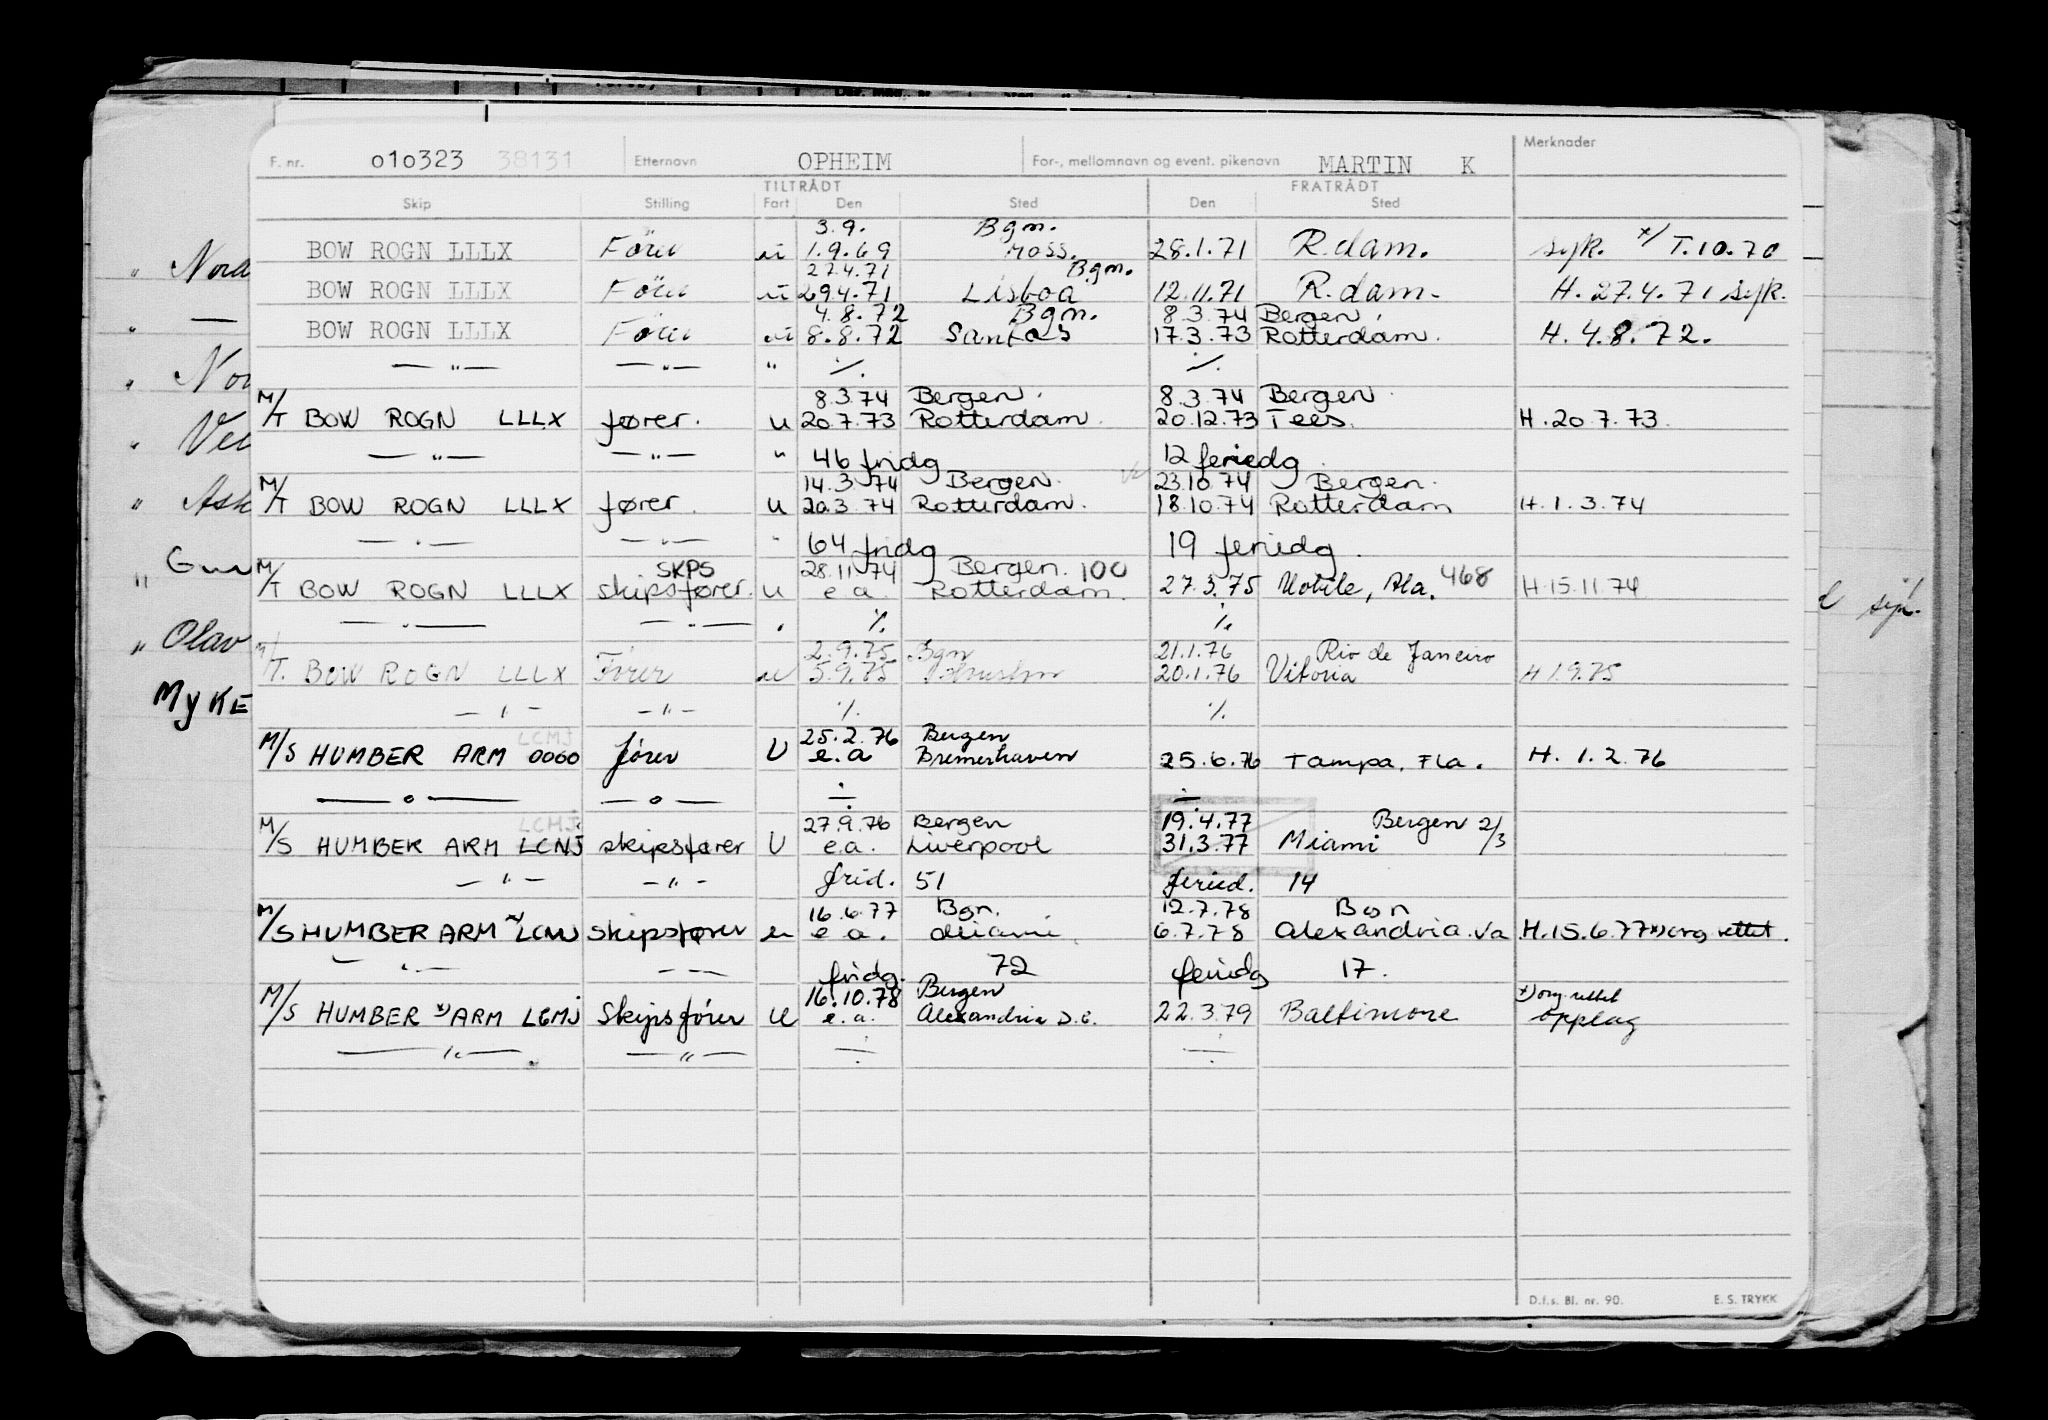 F. nr. 010323 38131 Etternavn OPHEIM For-, mellomnavn og event. pikenavn MARTIN K Merknader
TILTRÅDT FRATRÅDT
Skip Stilling Fart Den Sted Den Sted
3.9. Bgm.
BOW ROGN LLLX Förer u 1.9.69 Moss. 28.1.71 R.dam. syk. x/ T.10.70
27.4.71 Bgm.
BOW ROGN LLLX Förer u 29.4.71 Lisboa 12.11.71 R.dam. H. 27.4.71 syk.
4.8.72 Bgm. 8.3.74 Bergen
BOW ROGN LLLX Förer u 8.8.72 Santos 17.3.73 Rotterdam. H. 4.8.72.
— " — — " — " ./. ./.
8.3.74 Bergen. 8.3.74 Bergen
M/T BOW ROGN LLLX fører. u 20.7.73 Rotterdam. 20.12.73 Tees. H.20.7.73.
— " — — " — " 46 fridg 12 feriedg.
14.3.74 Bergen. 23.10.74 Bergen.
M/T BOW ROGN LLLX fører. u 20.3.74 Rotterdam. 18.10.74 Rotterdam H.1.3.74
— " — — " — " 64 fridg 19 feriedg.
SKPS 28.11.74 Bergen. 100
M/T BOW ROGN LLLX skipsfører. u e.a. Rotterdam. 27.3.75 Mobile, Ala. 468 H.15.11.74
— " — — " — ./. ./.
2.9.75 Bgn 21.1.76 Rio de Janeiro
M/T. BOW ROGN LLLX Fører u 5.9.75 20.1.76 Vitoria H 1.9.75
— " — — " — ./. ./.
LCMJ 25.2.76 Bergen
M/S HUMBER ARM 0060 fører U e.a Bremerhaven 25.6.76 Tampa, Fla. H. 1.2.76
— o — — o — ÷ ÷
LCMJ 27.9.76 Bergen 19.4.77 Bergen 2/3
M/S HUMBER ARM LCNJ skipsfører U e.a. Liverpool 31.3.77 Miami
— " — — " — frid. 51 feried. 14
16.6.77 Bgn. 12.7.78 Bgn
M/S HUMBER ARM x) LCNJ skipsfører u e.a. Miami 6.7.78 Alexandria.Va H.15.6.77 x) org rettet.
— " — — — fridg. 72 feriedg 17.
16.10.78 Bergen x) org. rettet
M/S HUMBER x) ARM LCMJ Skipsfører u e.a. Alexandria D.C. 22.3.79 Baltimore opplag
— " — — " — ÷ ÷
D.f.s. Bl. nr. 90. E. S. TRYKK
" Nord
" —
" Nor
" Vel
" Ask
" Gun
" Olav
MYKE
syk.